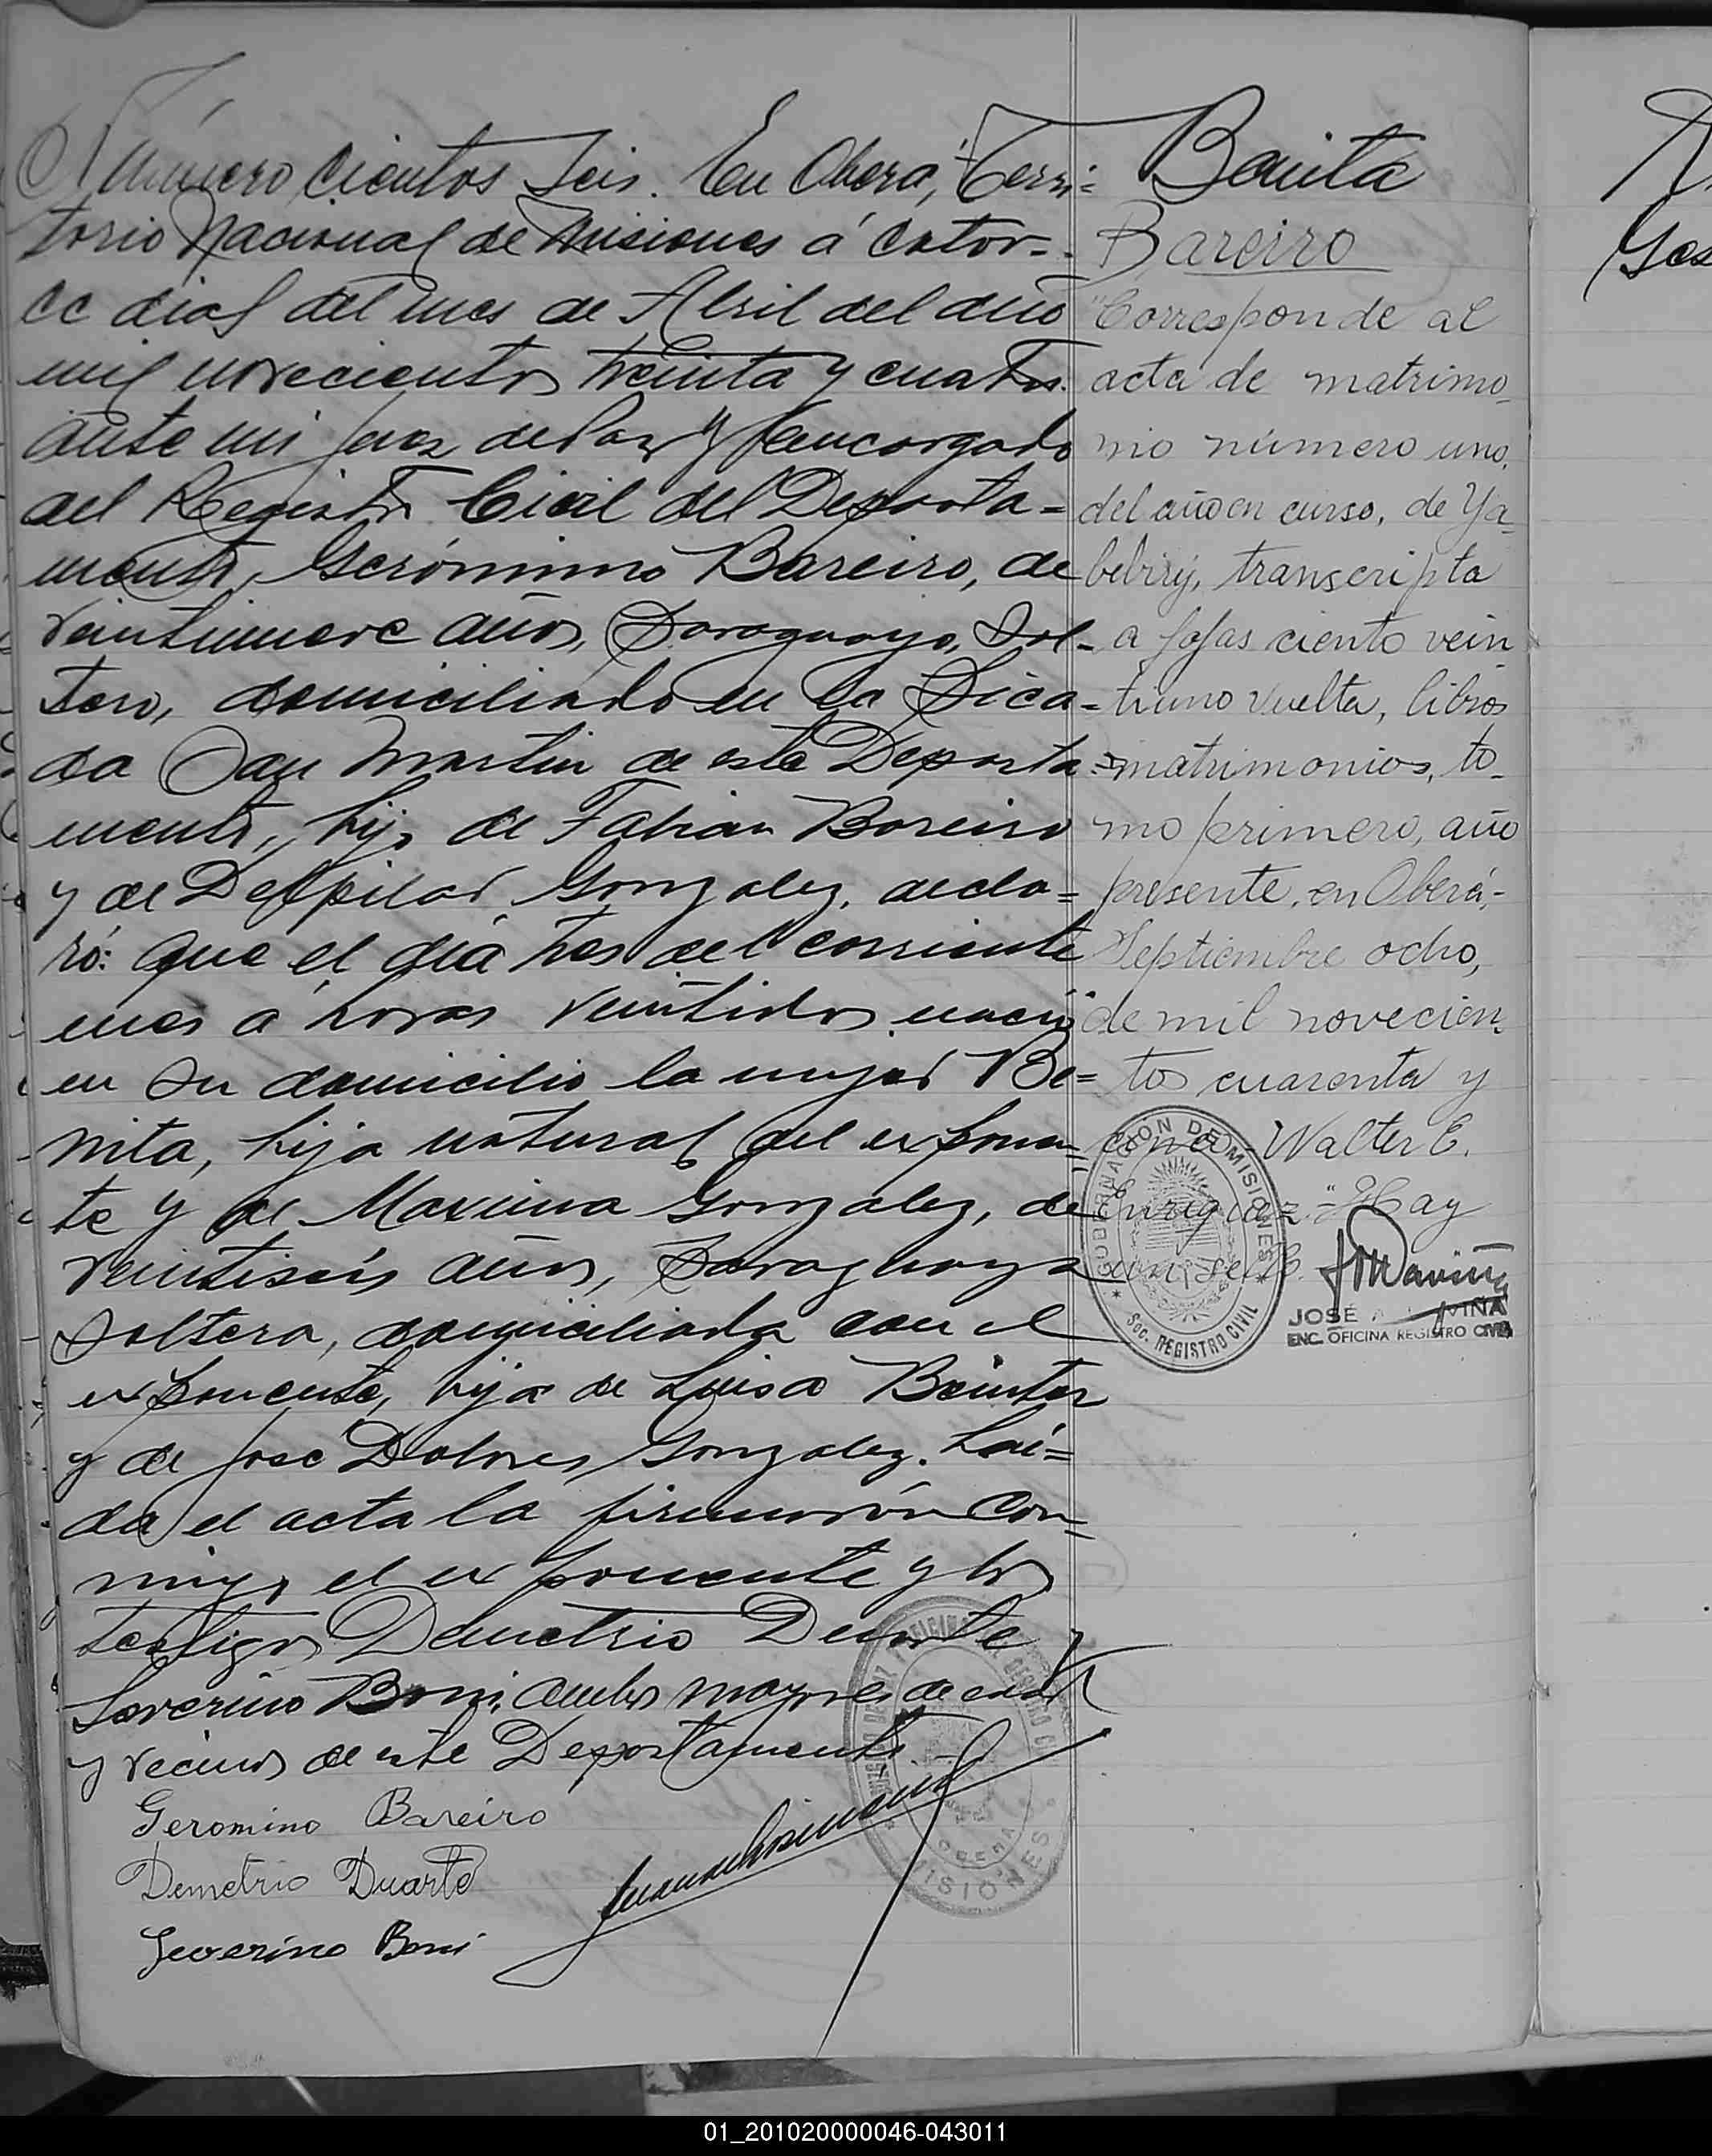 Número cientos seis. En Oberá, Terri=
torio Nacional de Misiones á cator=
ce dias del mes de Abril del año
mil novecientos treinta y cuatro.
ante mi Juez de Paz y Encargado
del Registro Civil del Departa=
mento, Gerónimo Bareiro, de
veintinueve años, Paraguayo, Sol=
tero, domiciliado en la Pica=
da San Martin de este Departa=
mento, hijo de Fabian Bareiro
y de Delpilar Gonzalez, decla=
ró: Que el día tres del corriente
mes á horas veintidos nació
en su domicilio la mujer Be=
nita, hija natural del exponen=
te y de Maxima Gonzalez, de
veintiseis años, Paraguaya
Soltera, domiciliada con el
exponente, hija de Luisa Benitez
y de José Dolores Gonzalez. Lei=
da el acta la firmarón con=
migo el exponente y los
testigos Demetrio Duarte y
Severino Boni, ambos mayores de edad
y vecinos de este Departamento.
Geromino Bareiro
Demetrio Duarte
Severino Boni
Benita
Bareiro
"Corresponde al
acta de matrimo_
nio número uno,
del año en curso, de Ya_
bebirý, transcripta
a fojas ciento vein
tiuno vuelta, libros
matrimonios, to_
mo primero, año
presente, en Oberá,-
Septiembre ocho,
de mil novecien_
tos cuarenta y
cinco- Walter E.
Enriquez."- Hay
un sello.
GOBERNACION DE MISIONES
Soc. REGISTRO CIVIL
JOSÉ
ENC. OFICINA REGISTRO CIVIL
JUZGADO DE PAZ Y OFICINA DEL REGISTRO CIVIL
OBERA
MISIONES
Ges
01_201020000046-043011